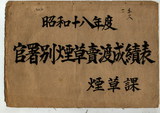 昭和十八年度
官署別煙草賣渡成績表
煙草課